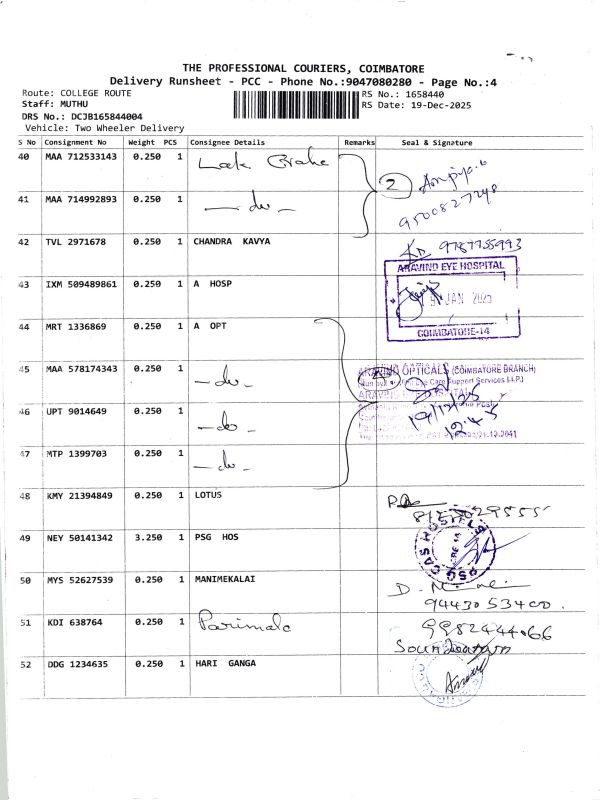 THE PROFESSIONAL COURIERS, COIMBATORE
Delivery Runsheet - PCC - Phone No.:9047080280 - Page No.:4
Route: COLLEGE ROUTE
Staff: MUTHU
DRS No.: DCJB165844004
Vehicle: Two Wheeler Delivery
RS No.: 1658440
RS Date: 19-Dec-2025
S No Consignment No Weight PCS Consignee Details Remarks Seal & Signature
40 MAA 712533143 0.250 1 2
41 MAA 714992893 0.250 1 - do - 9500827248
42 TVL 2971678 0.250 1 CHANDRA KAVYA 9787755993
43 IXM 509489861 0.250 1 A HOSP
ARAVIND EYE HOSPITAL
JAN 2025
COIMBATORE-14
44 MRT 1336869 0.250 1 A OPT
45 MAA 578174343 0.250 1 - do -
ARAVIND OPTICALS (COIMBATORE BRANCH)
Eye Care Support Services LLP)
46 UPT 9014649 0.250 1 - do - 19/12/25
12.45
47 MTP 1399703 0.250 1 - do -
48 KMY 21394849 0.250 1 LOTUS
49 NEY 50141342 3.250 1 PSG HOS
PSG CAS HOSTELS
50 MYS 52627539 0.250 1 MANIMEKALAI
9443053400.
51 KDI 638764 0.250 1 Parimala 9982444066
52 DDG 1234635 0.250 1 HARI GANGA